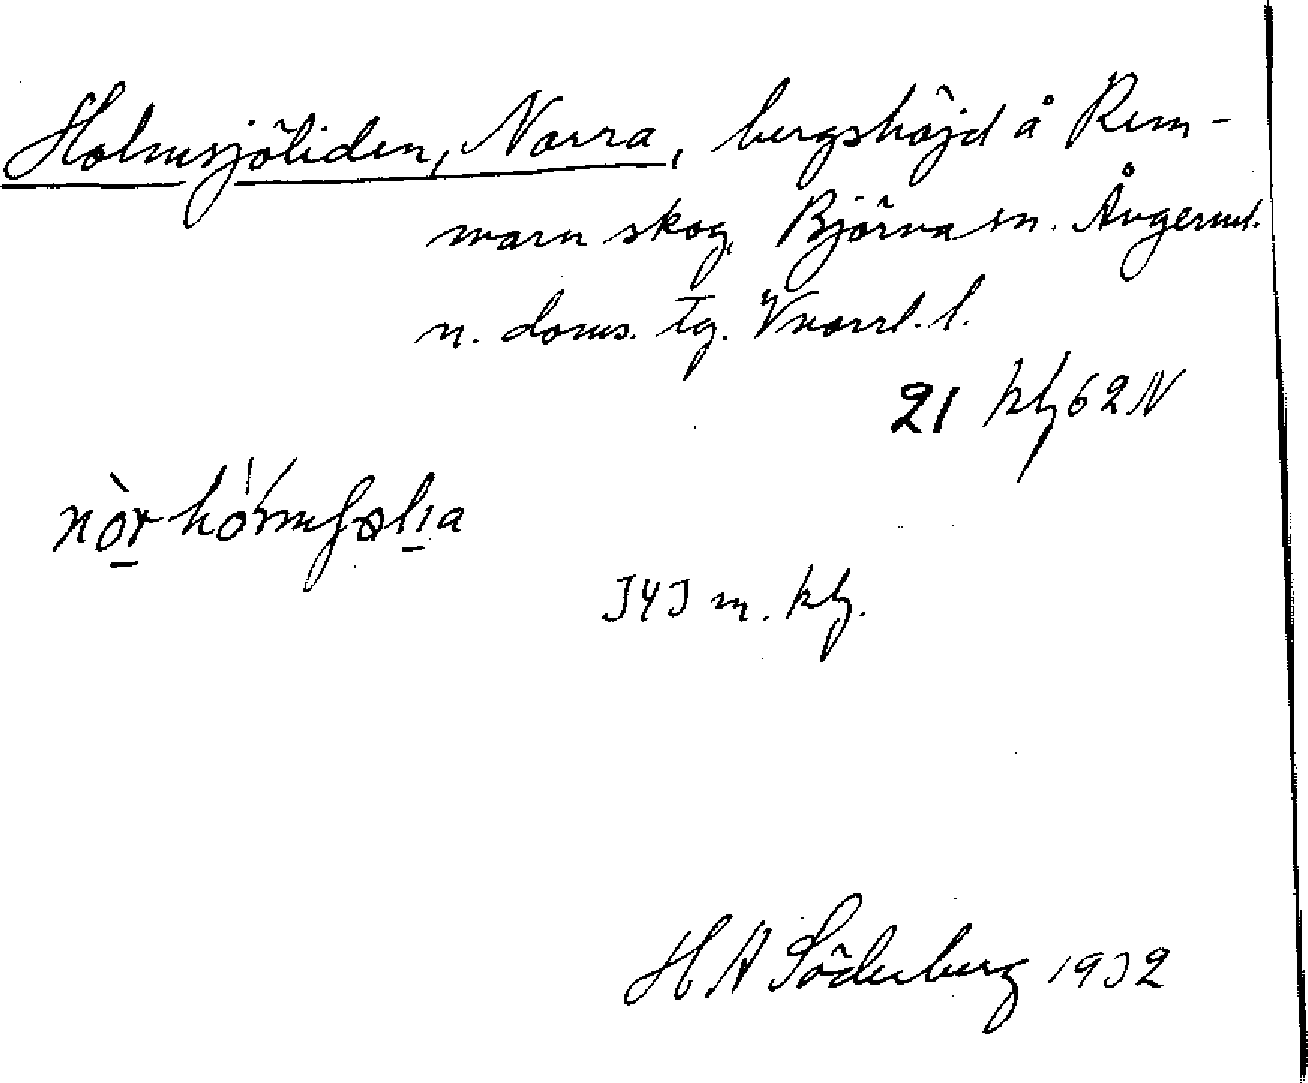 Holmsjöliden, Norra, bergshöjd å Rem-
marn skog, Björna sn. Ångerml.
n. doms. tg. Vnorrl. l.
21 ktj 62 N
nòr hólmʃøli̱a
343 m. ktj.
H A Söderberg 1932